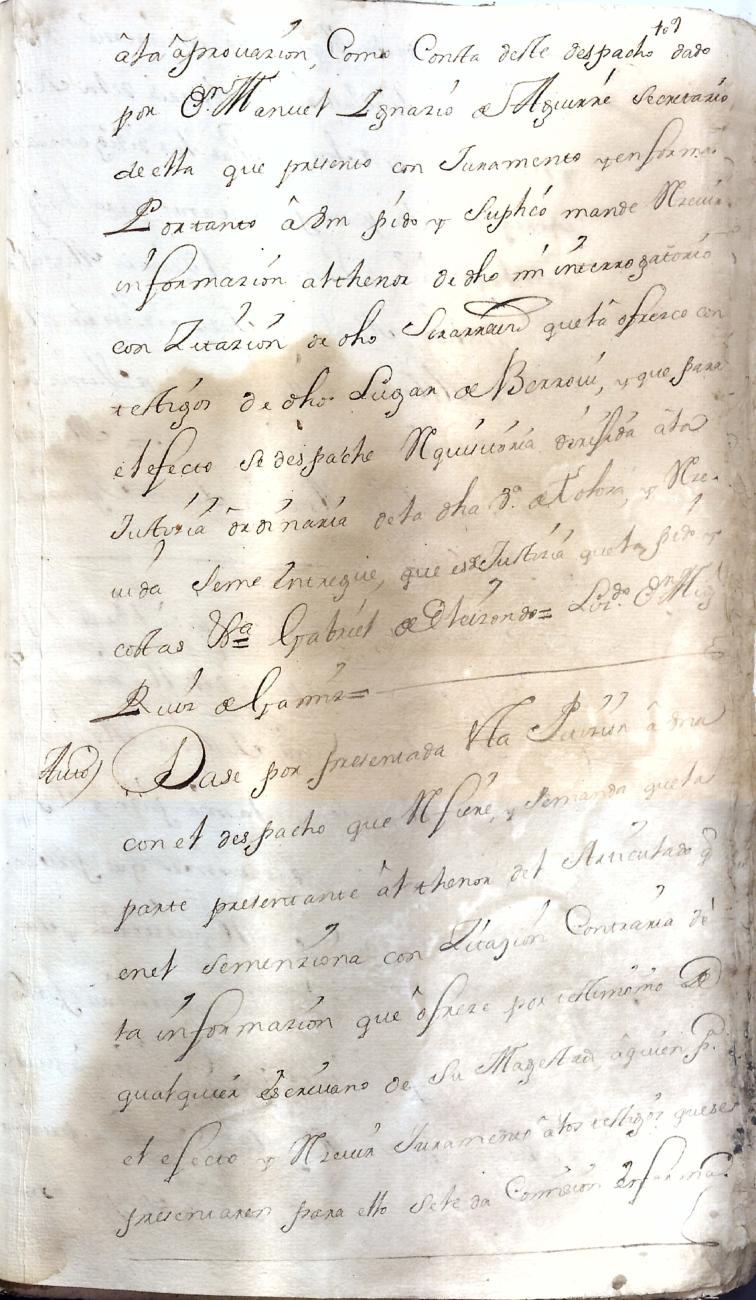 â la âprovazion, Como Consta deste despacho dado
por Dn. Manuel Ygnazio de Aguirre Secretario
de ella que presento con Juramento y en forma
Portanto â Vm pido y Suplico mande Rrecivir
informazion al thenor de dho mi interrogatorio
con Zitazion de dho que la ofrezco con
testigos de dho Lugar de Berrovi, y que para
el efecto se despache Rrequisitoria dirijida â la
Justizia ôrdinaria de la dha Va. de Tolosa, y Rrece
vida Seme Entregue, que es Justizia que la pido y
costas Va Gabriel de Eleizondo= Lizdo. Dn. Migl
Ruiz de Gamiz=
Auto) Dase por presentada Esta Petizion â
con el despacho que Rrefiere, y Semanda que la
parte presentante âl thenor del Articulado q
enel Semenziona con Zitazion Contraria de
la informazion que ôfreze por testimonio de
qualquier Escrivano de Su Magestad, â quien pa.
el efecto y Rrecivir Juramento â los testigos quese
presentaren para ello Sele da Comision en forma